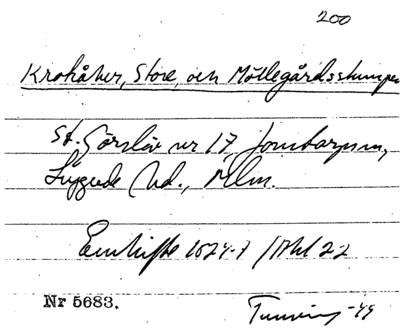 200
Krokåker, Store, och Möllegårdsstumpen
St. Görslöv nr 17, Jonstorps sn,
Luggude hd., Mlm.
Enskifte 1824-7 / Akt 22
Nr 5683.
-49